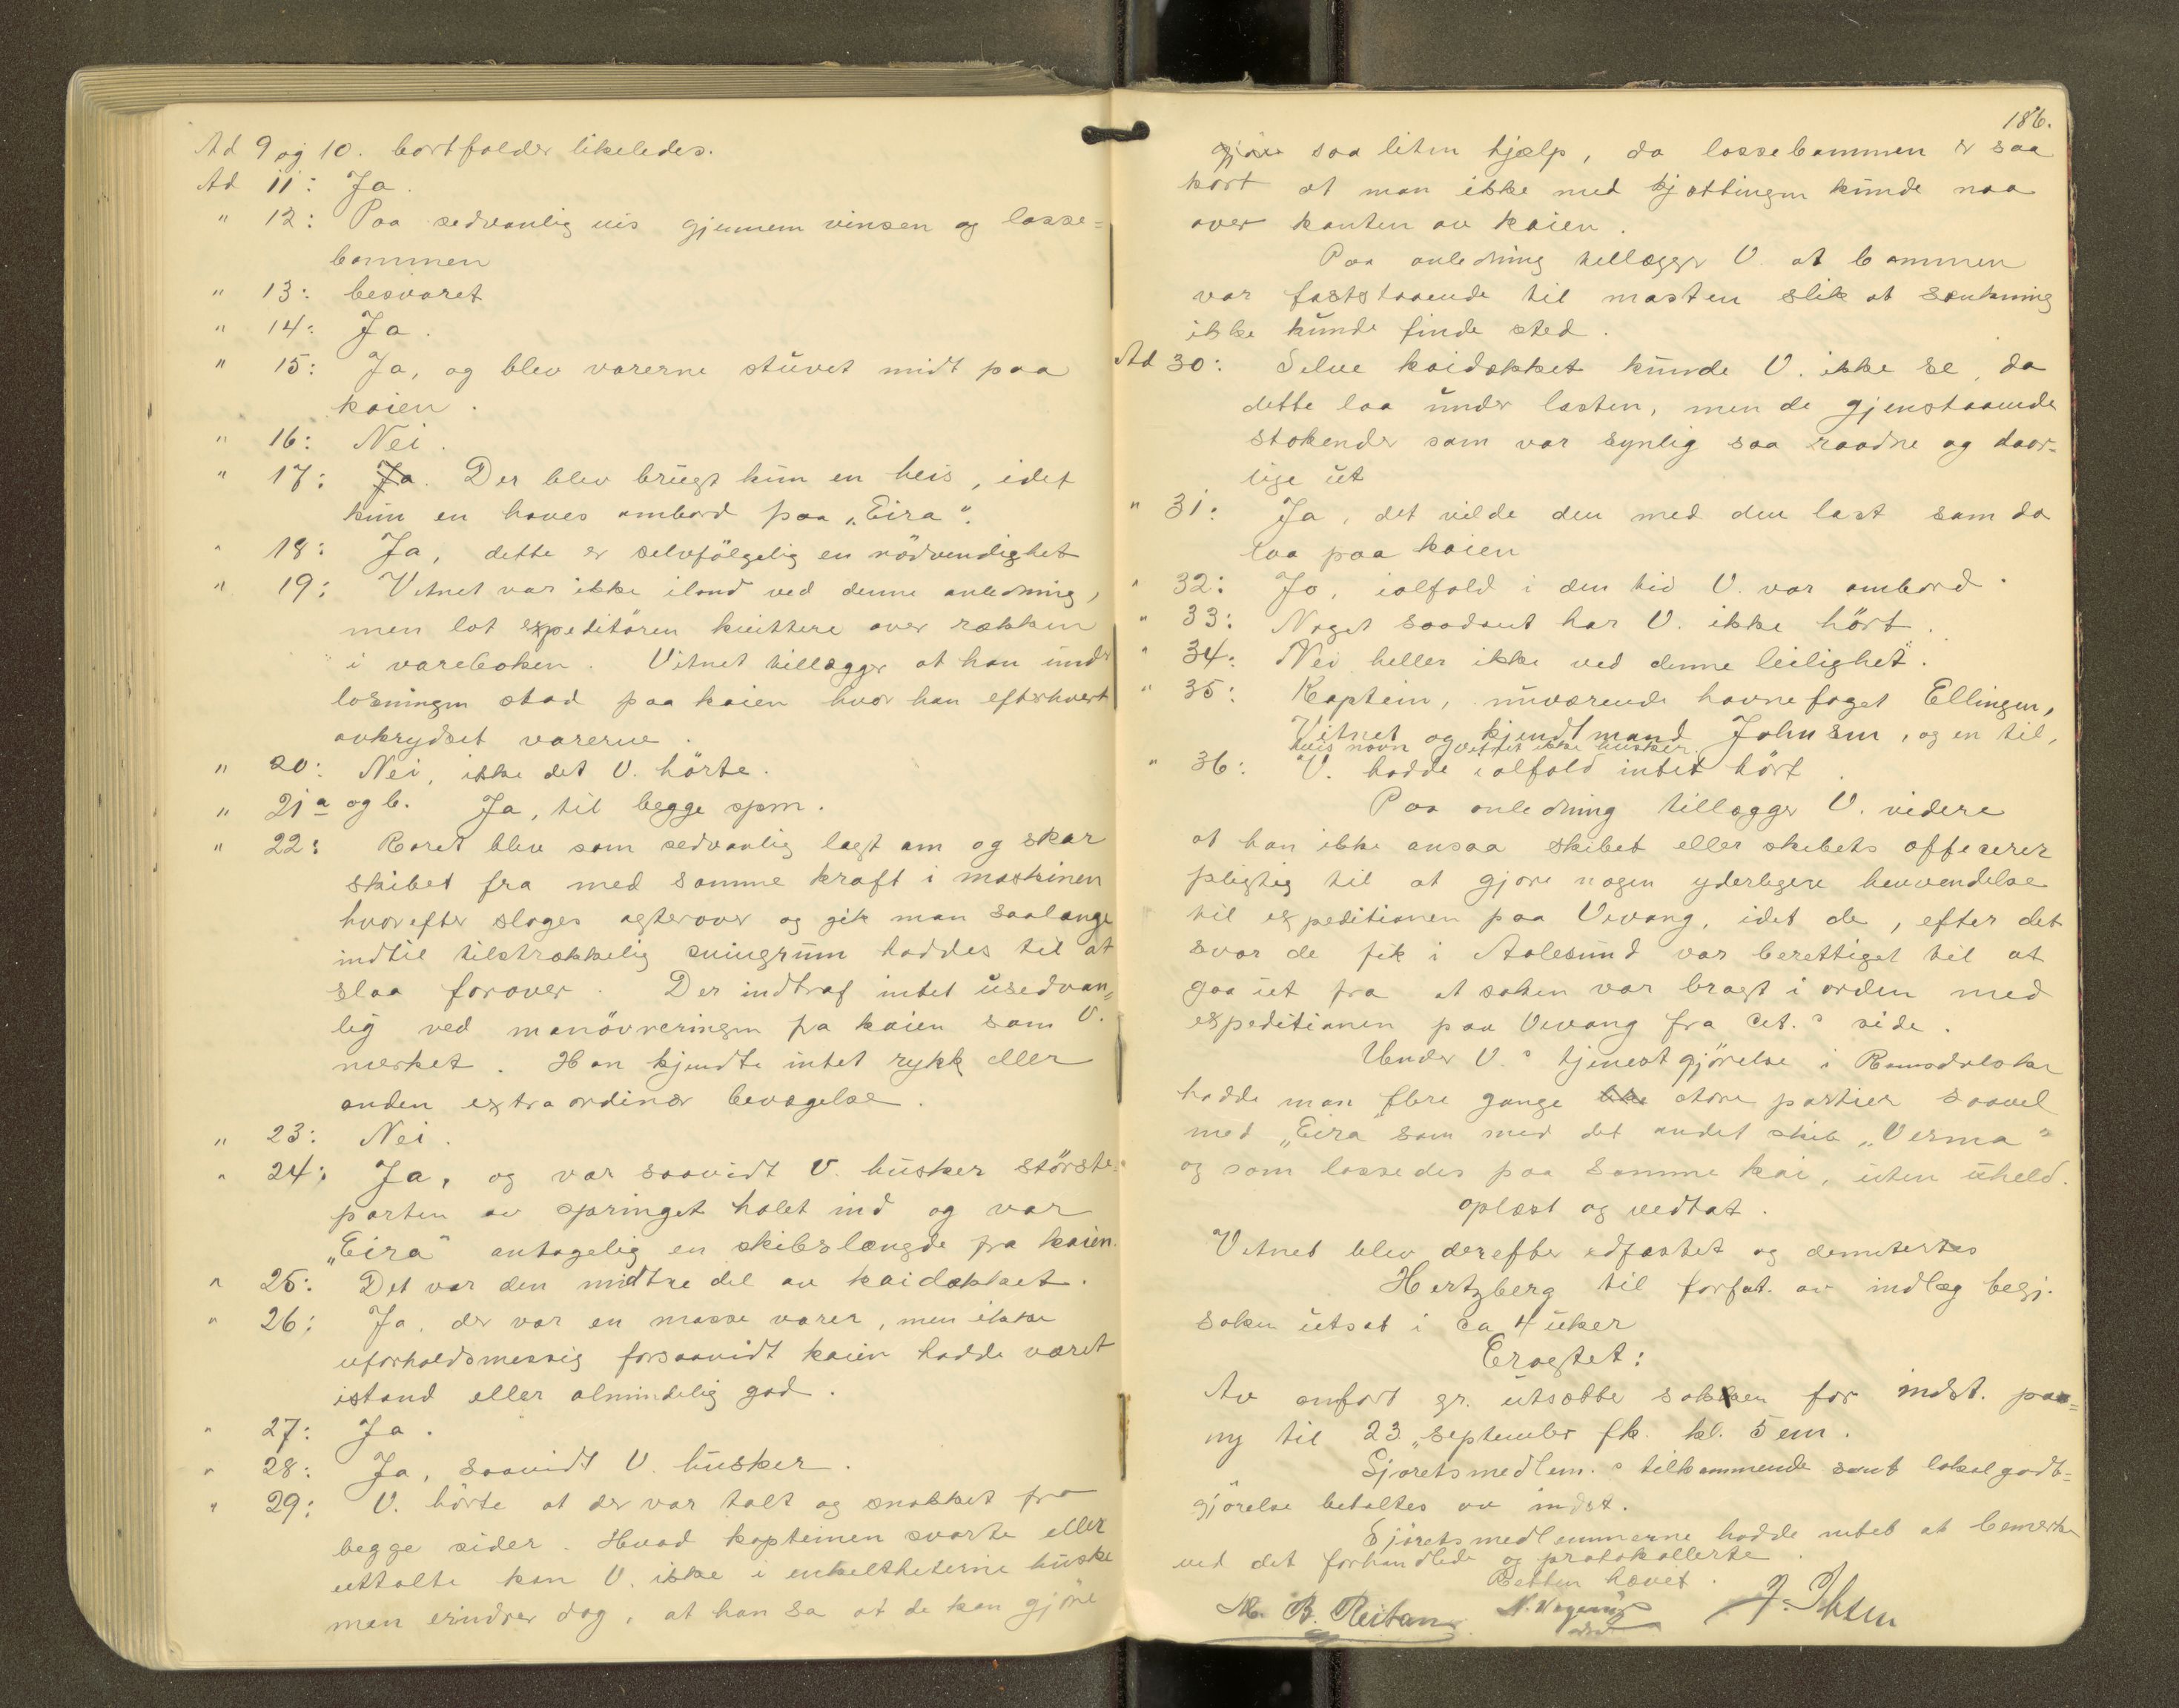 Ad 9 og 10. bortfalder likeledes.
Ad 11: Ja.
" 12: Paa sedvanlig vis gjennem vinsen og losse=
bommen
" 13: besvaret
" 14: Ja.
" 15: Ja, og blev varerne stuvet midt paa
kaien.
" 16: Nei.
" 17: Ja. Der blev brugt kun en heis, idet
kun en haves ombord paa "Eira".
" 18: Ja, dette er selvfölgelig en nödvendighet
" 19: Vitnet var ikke iland ved denne anledning,
men lot expeditören kvittere over rækken
i vareboken. Vitnet tillægger at han under
losningen stod paa kaien hvor han efterhvert
avkrydset varerne.
" 20: Nei, ikke det V. hörte.
" 21 a og b. Ja, til begge spm.
" 22: Roret blev som sedvanlig lagt om og skar
skibet fra med samme kraft i maskinen
hvorefter sloges agterover og gik man saalange
indtil tilstrækkelig svingrum haddes til at
slaa forover. Der indtraf intet usedvan=
lig ved manövreringen fra kaien som V.
merket. Han kjendte intet rykk eller
anden extraordinær bevægelse.
" 23: Nei.
" 24: Ja, og var saavidt V. husker störste=
parten av springet halet ind og var
"Eira" antagelig en skibslængde fra kaien.
" 25: Det var den midtre del av kaidækket.
" 26: Ja, der var en masse varer, men ikke
uforholdsmessig forsaavidt kaien hadde været
istand eller almindelig god.
" 27: Ja.
" 28: Ja, saavidt V. husker.
" 29: V. hörte at der var talt og snakket fra
begge sider. Hvad kapteinen svarte eller
uttalte kan V. ikke i enkelthetene huske
men erindrer dog, at han sa at de kan gjöre
186.
gjöre saa liten hjælp, da lossebommen er saa
kort at man ikke med kjættingen kunde naa
over kanten av kaien.
Paa anledning tillægger V. at bommen
var faststaaende til masten slik at sænkning
ikke kunde finde sted.
Ad 30: Selve kaidækket kunde V. ikke se, da
dette laa under lasten, men de gjenstaaende
stokender som var synlig saa raadne og daar=
lige ut
" 31: Ja, det vilde den med den last som da
laa paa kaien
" 32: Jo, ialfald i den tid V. var ombord.
" 33: Noget saadant har V. ikke hört.
" 34: Nei heller ikke ved denne leilighet.
" 35: Kaptein, nuværende havnefoget Ellingsen,
Vitnet og kjendtmand Johnsen, og en til,
hvis navn vitnet ikke husker.
" 36: V. hadde ialfald intet hört.
Paa anledning tillægger V. videre
at han ikke ansaa skibet eller skibets officerer
pligtig til at gjöre nogen yderligere henvendelse
til expeditionen paa Vevang, idet de, efter det
svar de fik i Aalesund var berettiget til at
gaa ut fra at saken var bragt i orden med
expeditionen paa Vevang fra cit.s side.
Under V.s tjenestgjörelse i Romsdalske
hadde man flere gange store partier saavel
med "Eira" som med det andet skib "Verma"
og som lossedes paa samme kai, uten uheld.
oplæst og vedtat.
Vitnet blev derefter edfæstet og demitertes
Hertzberg til forfat. av indlæg begj.
saken utsat i ca 4 uker
Eragtet:
Av anfört gr. utsættes sakken for indst. paa=
ny til 23. september fk. kl. 5 em.
Sjöretsmedlem.s tilkommende samt lokalgodt=
gjörelse betaltes av indst.
Sjöretsmedlemmerne hadde intet at bemerke
ved det forhandlede og protokollerte.
Retten hævet.
M. B. Reitan J. Ibsen